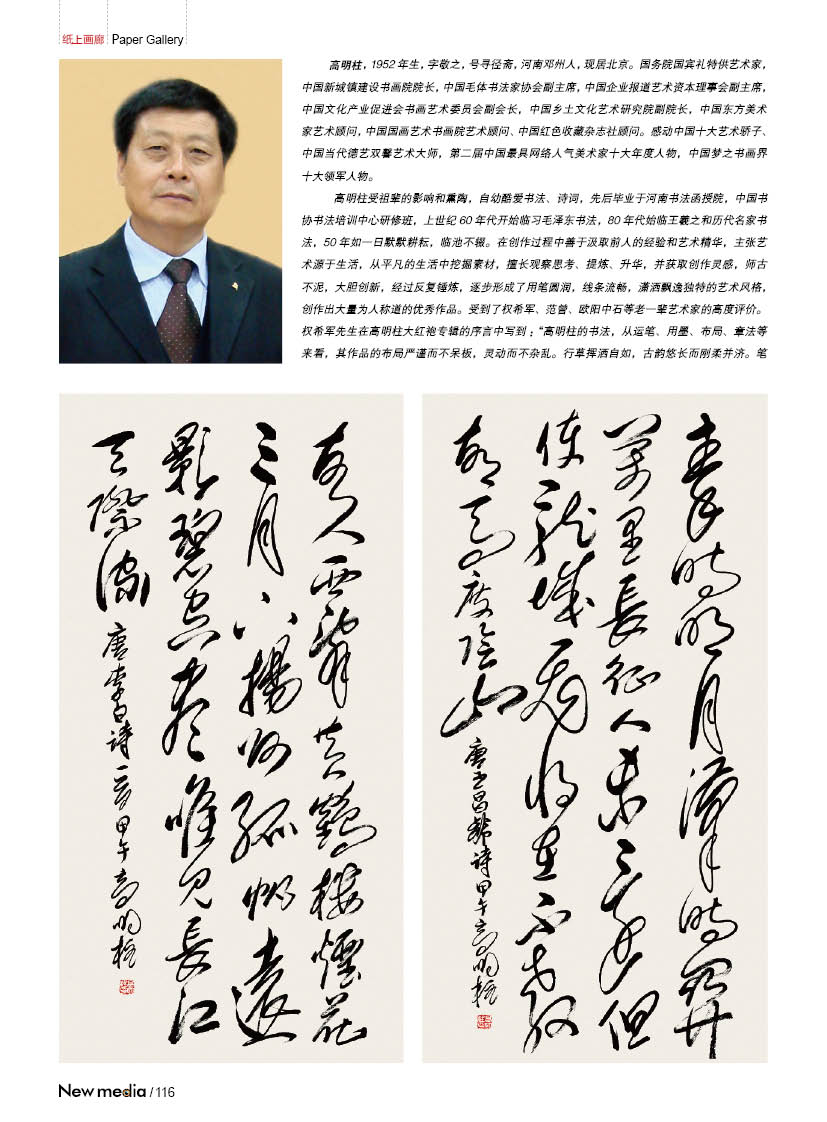 纸上画廊 Paper Gallery
高明柱，1952年生，字敬之，号寻径斋，河南邓州人，现居北京。国务院国宾礼特供艺术家，
中国新城镇建设书画院院长，中国毛体书法家协会副主席，中国企业报道艺术资本理事会副主席，
中国文化产业促进会书画艺术委员会副会长，中国乡土文化艺术研究院副院长，中国东方美术
家艺术顾问，中国国画艺术书画院艺术顾问、中国红色收藏杂志社顾问。感动中国十大艺术骄子、
中国当代德艺双馨艺术大师，第二届中国最具网络人气美术家十大年度人物，中国梦之书画界
十大领军人物。
高明柱受祖辈的影响和熏陶，自幼酷爱书法、诗词，先后毕业于河南书法函授院，中国书
协书法培训中心研修班，上世纪60年代开始临习毛泽东书法，80年代始临王羲之和历代名家书
法，50年如一日默默耕耘，临池不辍。在创作过程中善于汲取前人的经验和艺术精华，主张艺
术源于生活，从平凡的生活中挖掘素材，擅长观察思考、提炼、升华，并获取创作灵感，师古
不泥，大胆创新，经过反复锤炼，逐步形成了用笔圆润，线条流畅，潇洒飘逸独特的艺术风格，
创作出大量为人称道的优秀作品。受到了权希军、范曾、欧阳中石等老一辈艺术家的高度评价。
权希军先生在高明柱大红袍专辑的序言中写到：“高明柱的书法，从运笔、用墨、布局、章法等
来看，其作品的布局严谨而不呆板，灵动而不杂乱。行草挥洒自如，古韵悠长而刚柔并济。笔
秦時明月漢時關
萬里長征人未還但
使龍城飛將在不教
胡馬度陰山
唐王昌齡詩甲午高明柱
故人西辭黃鶴樓煙花
三月下揚州孤帆遠
影碧空盡唯見長江
天際流
唐李白詩一首甲午高明柱
New media / 116